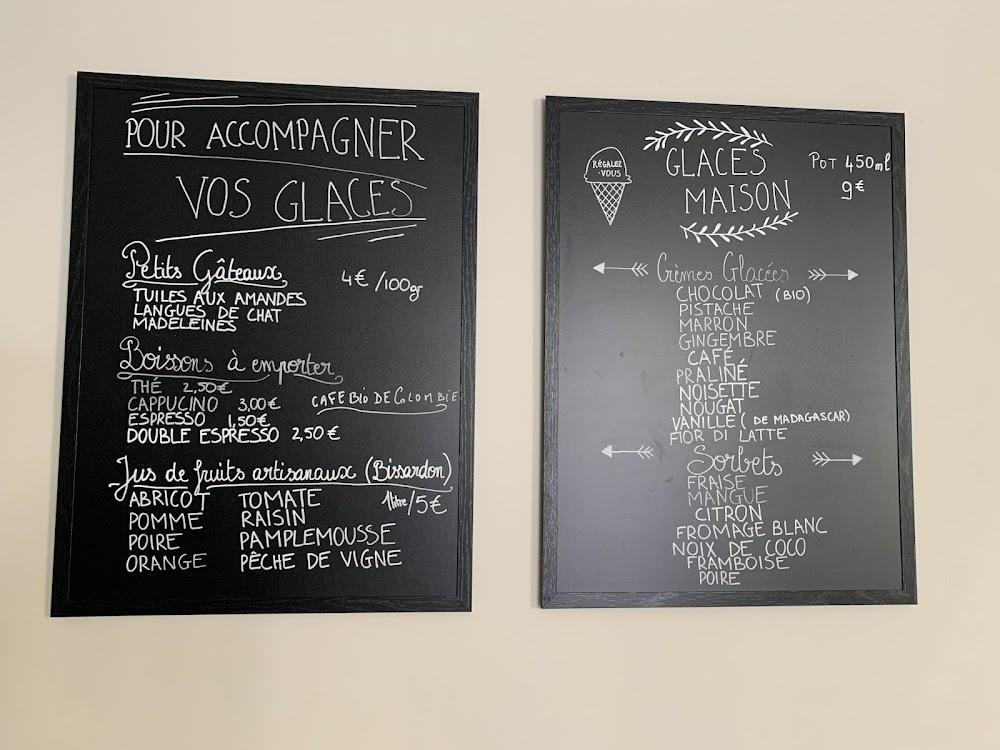 POUR ACCOMPAGNER
VOS GLACES
Petits Gâteaux 4€/100gr
TUILES AUX AMANDES
LANGUES DE CHAT
MADELEINES
Boissons à emporter
THÉ 2,50€
CAPPUCINO 3,00€ CAFE BIO DE COLOMBIE
ESPRESSO 1,50€
DOUBLE ESPRESSO 2,50€
Jus de fruits artisanaux (Bissardon)
ABRICOT TOMATE 1litre/5€
POMME RAISIN
POIRE PAMPLEMOUSSE
ORANGE PÊCHE DE VIGNE
RÉGALEZ
-VOUS
GLACES
MAISON
POT 450ml
9€
Crèmes Glacées
CHOCOLAT (BIO)
PISTACHE
MARRON
GINGEMBRE
CAFÉ
PRALINÉ
NOISETTE
NOUGAT
VANILLE (DE MADAGASCAR)
FIOR DI LATTE
Sorbets
FRAISE
MANGUE
CITRON
FROMAGE BLANC
NOIX DE COCO
FRAMBOISE
POIRE